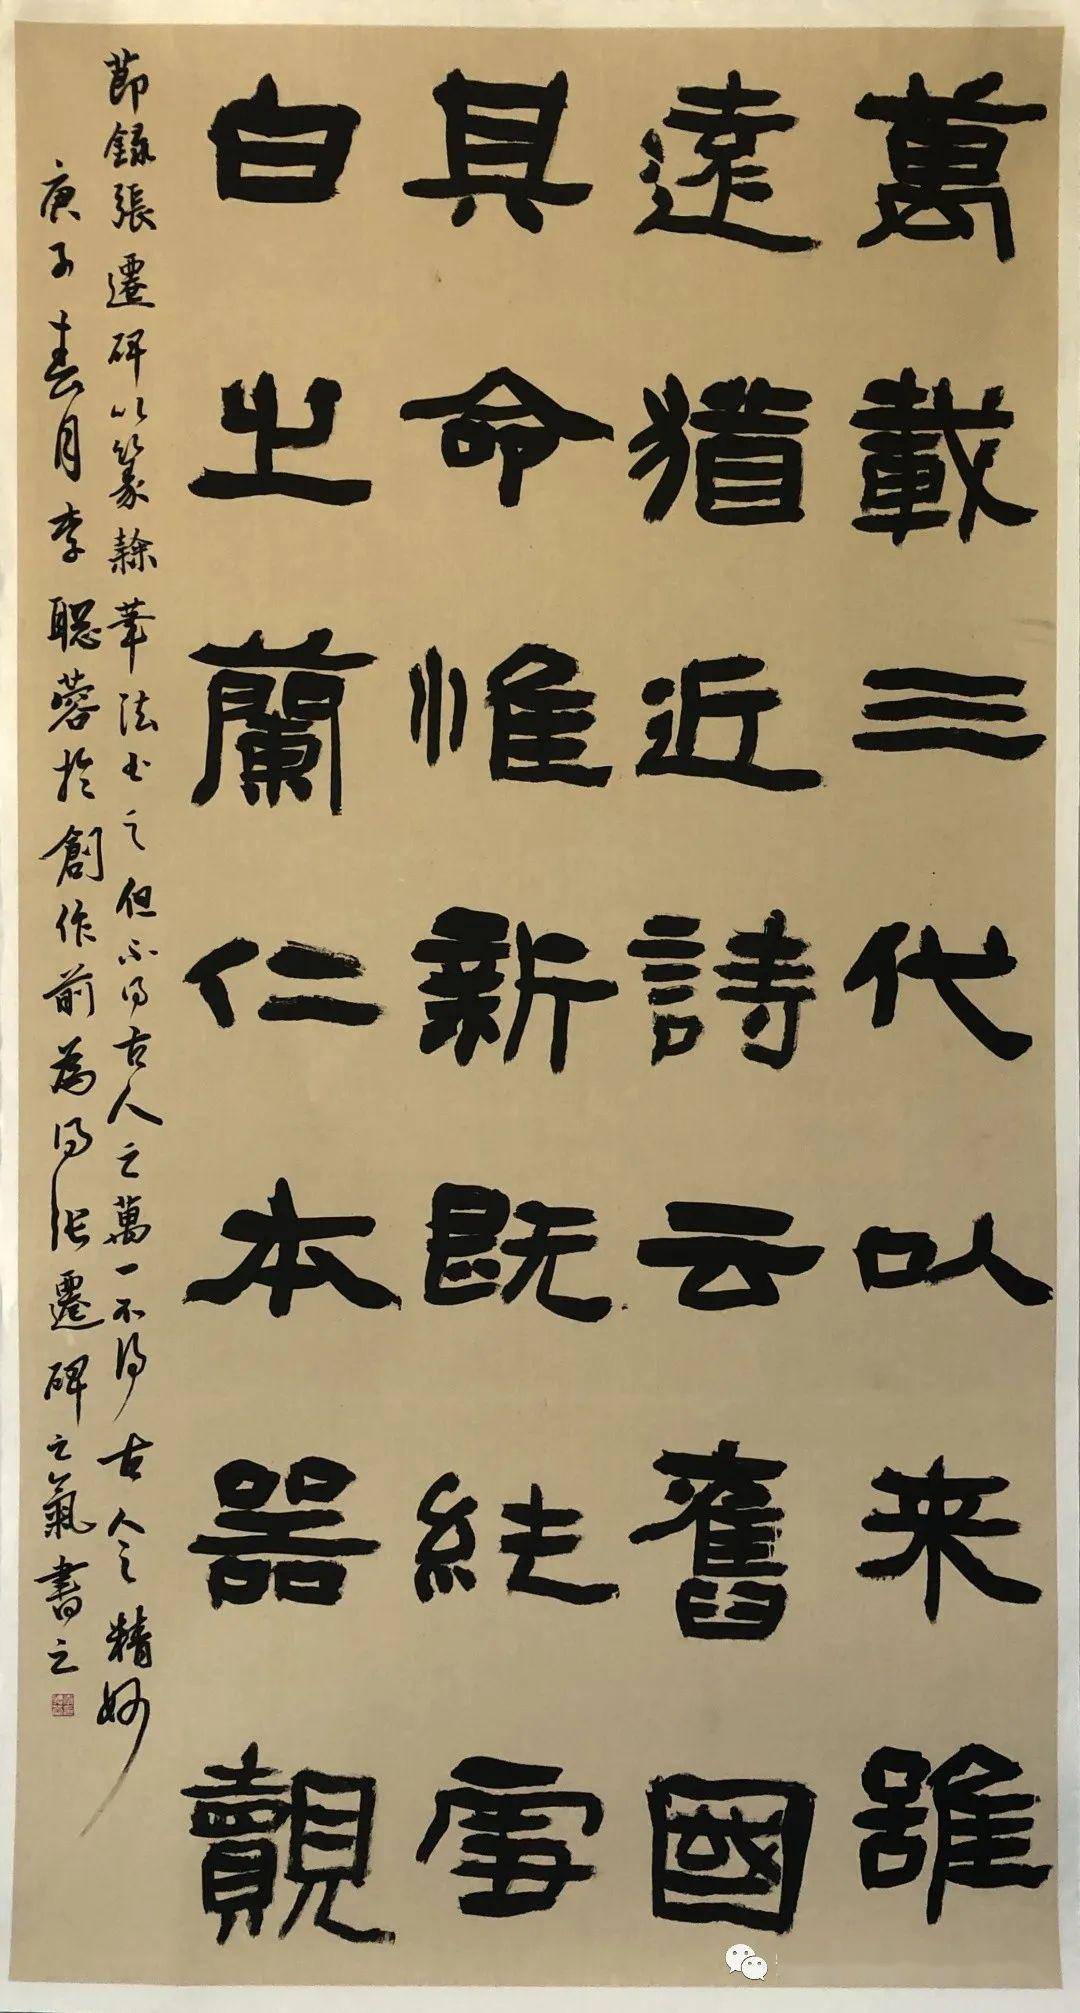 萬載三代以来雖
遠猶近詩云舊國
其命惟新既純雪
白之蘭仁本器覿
節録張遷碑以篆隸筆法书之但不得古人之萬一不得古人之精妙
庚子春月李聪蓉於創作前為得张遷碑之氣書之